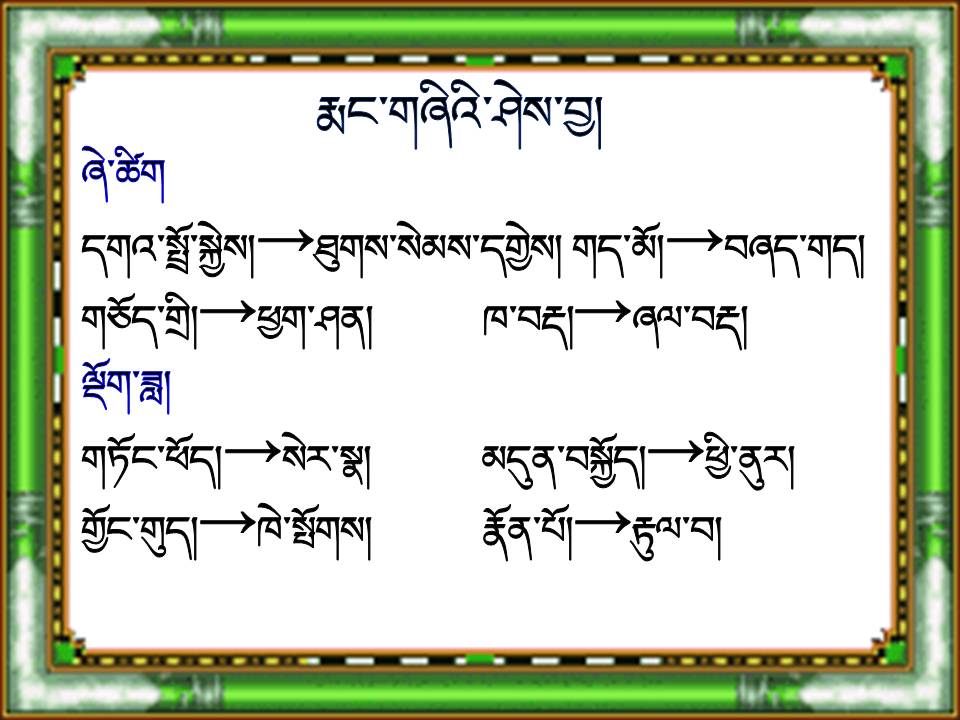 རྨང་གཞིའི་ཤེས་བྱ།
ཞེ་ཚིག
དགའ་སྤྲོ་སྐྱེས།→ཐུགས་སེམས་དགྱེས། གད་མོ།→བཞད་གད།
གཅོད་གྲི།→ཕྱག་ཤན། ཁ་བརྡ།→ཞལ་བརྡ།
ལྡོག་ཟླ།
གཏོང་ཕོད།→སེར་སྣ། མདུན་བསྐྱོད།→ཕྱི་ནུར།
གྱོང་གུད།→ཁེ་སྤོགས། རྣོན་པོ།→རྟུལ་བ།